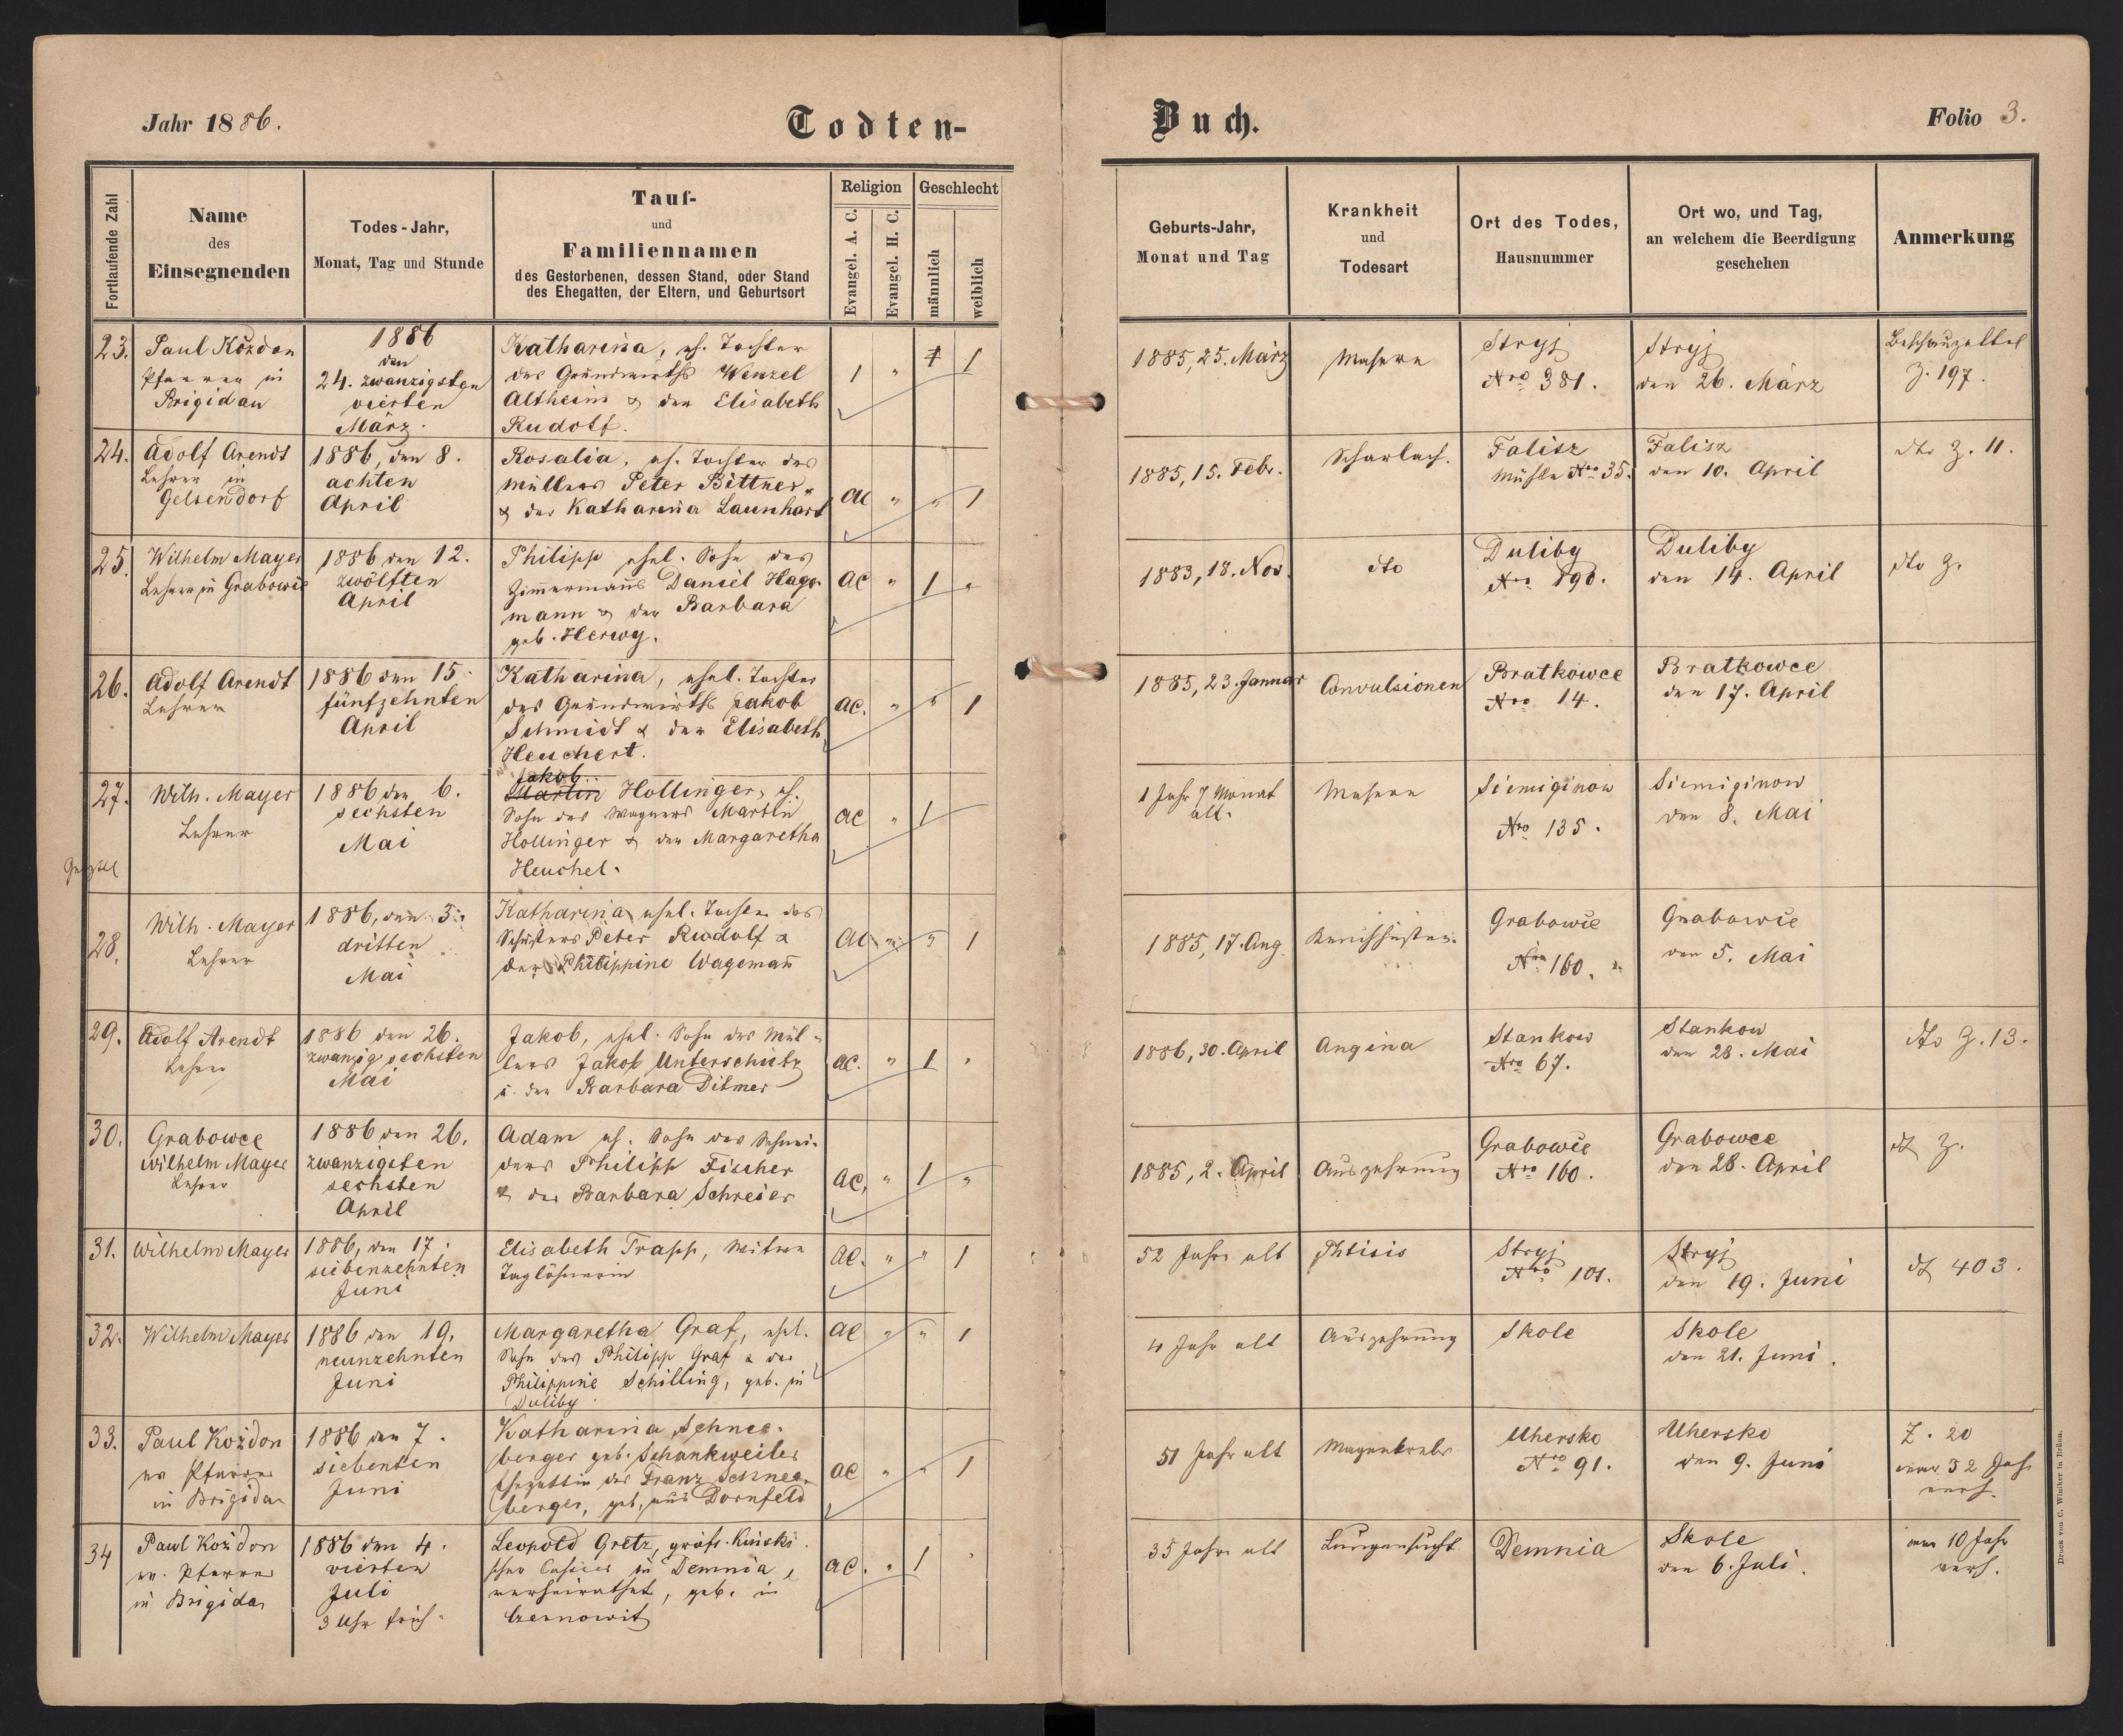 Jahr 1886.
Todten-
Buch.
Folio 3.
Fortlaufende Zahl
Name
des
Einsegnenden
Todes-Jahr,
Monat, Tag und Stunde
Tauf-
und
Familiennamen
des Gestorbenen, dessen Stand, oder Stand
des Ehegatten, der Eltern, und Geburtsort
Religion
Evangel. A. C.
Evangel. H. C.
Geschlecht
männlich
weiblich
Geburts-Jahr,
Monat und Tag
Krankheit
und
Todesart
Ort des Todes,
Hausnummer
Ort wo, und Tag,
an welchem die Beerdigung
geschehen
Anmerkung
23.
Paul Kożdon
Pfarrer in
Brigidau
1886
den
24. zwanzigsten
vierten
März.
Katharina, eh. Tochter
des Grundwirths Wenzel
Altheim & der Elisabeth
Rudolf.
1 " 1
1885, 25. März
Masern
Stryj
Nro 381.
Stryj
den 26. März
Beschauzettel
Z. 197.
24.
Adolf Arendt
Lehrer in
Gelsendorf
1886, den 8.
achten
April
Rosalia, eh. Tochter des
Müllers Peter Bittner
& der Katharina Launhart
AC " " 1
1885, 15. Febr.
Scharlach.
Falisz
Mühle Nro 35.
Falisz
den 10. April
dto Z. 11.
25.
Wilhelm Mayer
Lehrer in Grabowce
1886 den 12.
zwölften
April
Philipp ehel. Sohn des
Zimmermanns Daniel Hage-
mann & der Barbara
geb. Herwy.
AC " 1 "
1883, 18. Nov.
dto
Duliby
Nro 190.
Duliby
den 14. April
dto Z.
26.
Adolf Arendt
Lehrer
1886 den 15.
fünfzehnten
April
Katharina, ehel. Tochter
des Grundwirths Jakob
Schmidt & der Elisabeth
Heuchert.
AC. " " 1
1885, 23. Januar
Convulsionen
Bratkowce
Nro 14.
Bratkowce
den 17. April
27.
Wilh. Mayer
Lehrer
1886 den 6.
sechsten
Mai
Jakob
Martin Hollinger, eh.
Sohn des Wagners Martin
Hollinger & der Margaretha
Heuchel.
AC " 1
1 Jahr 7 Monat
alt.
Masern
Siemiginow
Nro 135.
Siemiginow
den 8. Mai
28.
Wilh. Mayer
Lehrer
1886, den 3.
dritten
Mai
Katharina, ehel. Tochter des
Schusters Peter Rudolf &
der Philippine Wagemann
AC " " 1
1885, 17. Aug.
Keuchhusten.
Grabowce
Nro 160.
Grabowce
den 5. Mai
29.
Adolf Arendt
Lehrer
1886 den 26.
zwanzig sechsten
Mai
Jakob, ehel. Sohn des Mül-
lers Jakob Unterschutz
u. der Barbara Ditmer
AC. " 1 "
1886, 30. April
Angina
Stankow
Nro 67.
Stankow
den 28. Mai
dto Z. 13.
30.
Grabowce
Wilhelm Mayer
Lehrer
1886 den 26.
zwanzigsten
sechsten
April
Adam eh. Sohn des Schnei-
ders Philipp Fischer
& der Barbara Schreier
AC, " 1 "
1885, 2. April
Auszehrung
Grabowce
Nro 160.
Grabowce
den 28. April
dt Z.
31.
Wilhelm Mayer
1886, den 17.
siebenzehnten
Juni
Elisabeth Trapp, Witwe
Taglöhnerin
AC. " " 1
52 Jahre alt
Phtisis
Stryj
Nro 101.
Stryj
den 19. Juni
dt 403.
32.
Wilhelm Mayer
1886 den 19.
neunzehnten
Juni
Margaretha Graf, ehel.
Sohn des Philipp Graf & der
Philippine Schilling, geb. in
Duliby
AC " " 1
4 Jahr alt
Auszehrung
Skole
Skole
den 21. Juni.
33.
Paul Kożdon
ev Pfarrer
in Brigidau
1886 den 7.
siebenten
Juni
Katharina Schnee-
berger geb. Schankweiler
Ehegattin des Franz Schnee-
berger, geb. aus Dornfeld
AC " " 1
51 Jahr alt
Magenkrebs
Uhersko
Nro 91.
Uhersko
den 9. Juni
Z. 20
war 32 Jah.
verh.
34
Paul Kożdon
ev. Pfarrer
in Brigidau
1886 den 4.
vierten
Juli
3 Uhr früh.
Leopold Gretz, gräfl. Kinski-
scher Cassier in Demnia,
verheirathet, geb. in
Czernowitz
AC. " 1 "
35 Jahre alt
Lungensucht
Demnia
Skole
den 6. Juli.
war 10 Jahr
verh.
Druck von C. Winiker in Brünn.